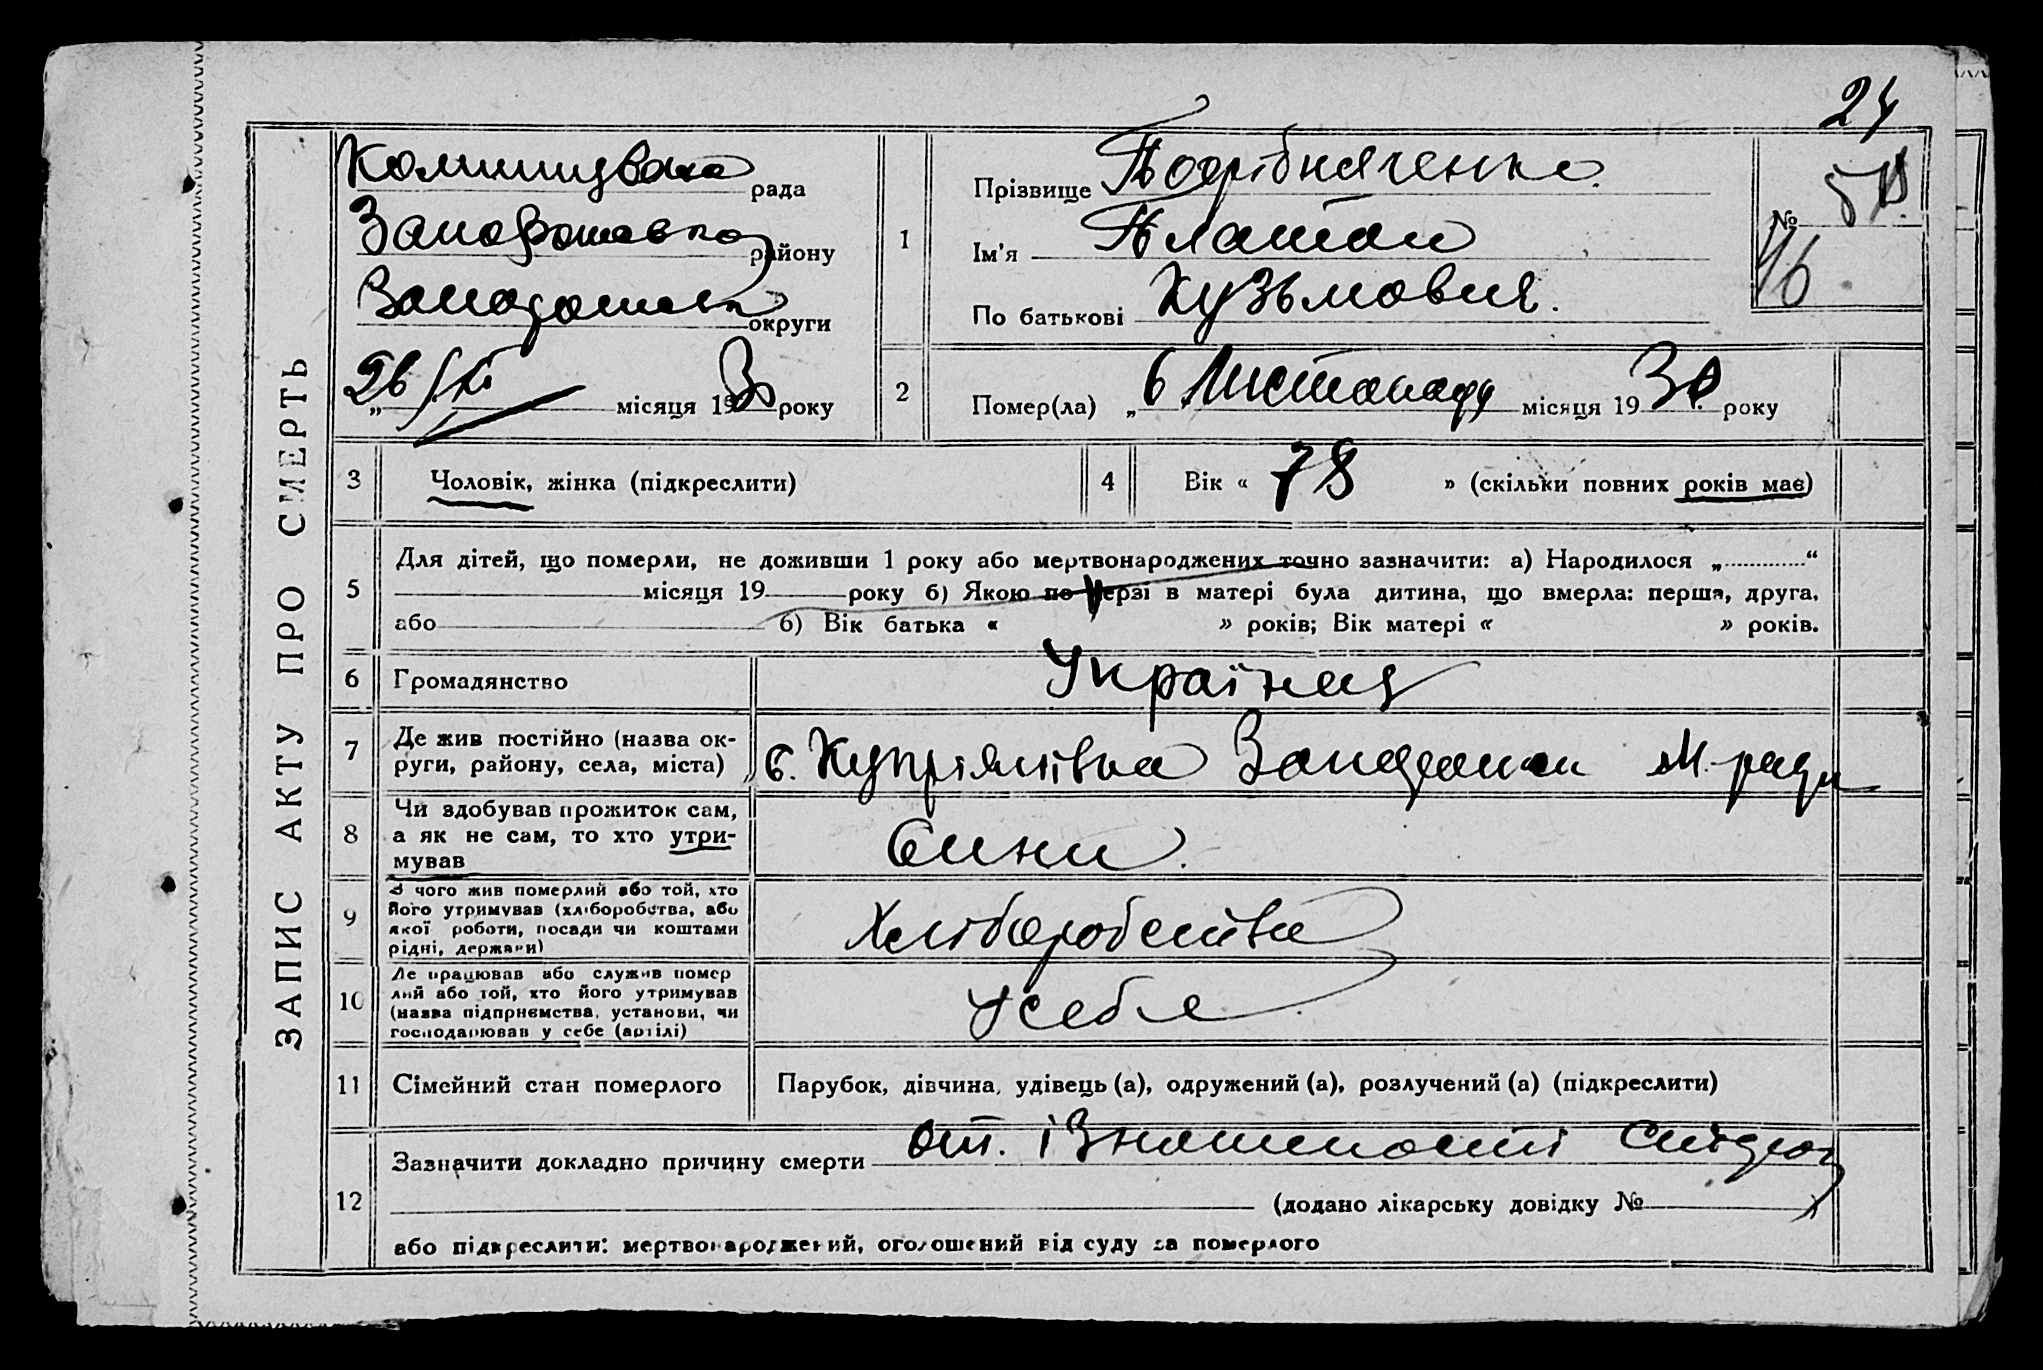 24
ЗАПИС АКТУ ПРО СМЕРТЬ
Комишуваха рада
району
округи
„26/XI місяця 1930 року
1
Прізвище Подрібняченко.
Ім'я Платон
По батькові Кузьмович.
№
46
2
Помер(ла) „6 Листопаду місяця 1930 року
3
Чоловік, жінка (підкреслити)
4
Вік « 78 » (скільки повних років має)
5
Для дітей, що померли, не доживши 1 року або мертвонароджених точно зазначити: а) Народилося „ “
місяця 19 року б) Якою по черзі в матері була дитина, що вмерла: перша, друга,
або б) Вік батька « » років; Вік матері « » років.
6
Громадянство
Українец
7
Де жив постійно (назва ок-
руги, району, села, міста)
с. Купріянівка М. ради
8
Чи здобував прожиток сам,
а як не сам, то хто утри-
мував
Сини.
9
З чого жив померлий або той, хто
його утримував (хліборобства, або
якої роботи, посади чи коштами
рідні, держави)
Хліборобства
10
Де працював або служив помер
лий або той, хто його утримував
(назва підприємства, установи, чи
господарював у себе (артілі)
У себе
11
Сімейний стан померлого
Парубок, дівчина, удівець (а), одружений (а), розлучений (а) (підкреслити)
12
Зазначити докладно причину смерти от. ізношености
(додано лікарську довідку № )
або підкреслити: мертвонароджений, оголошений від суду за померлого